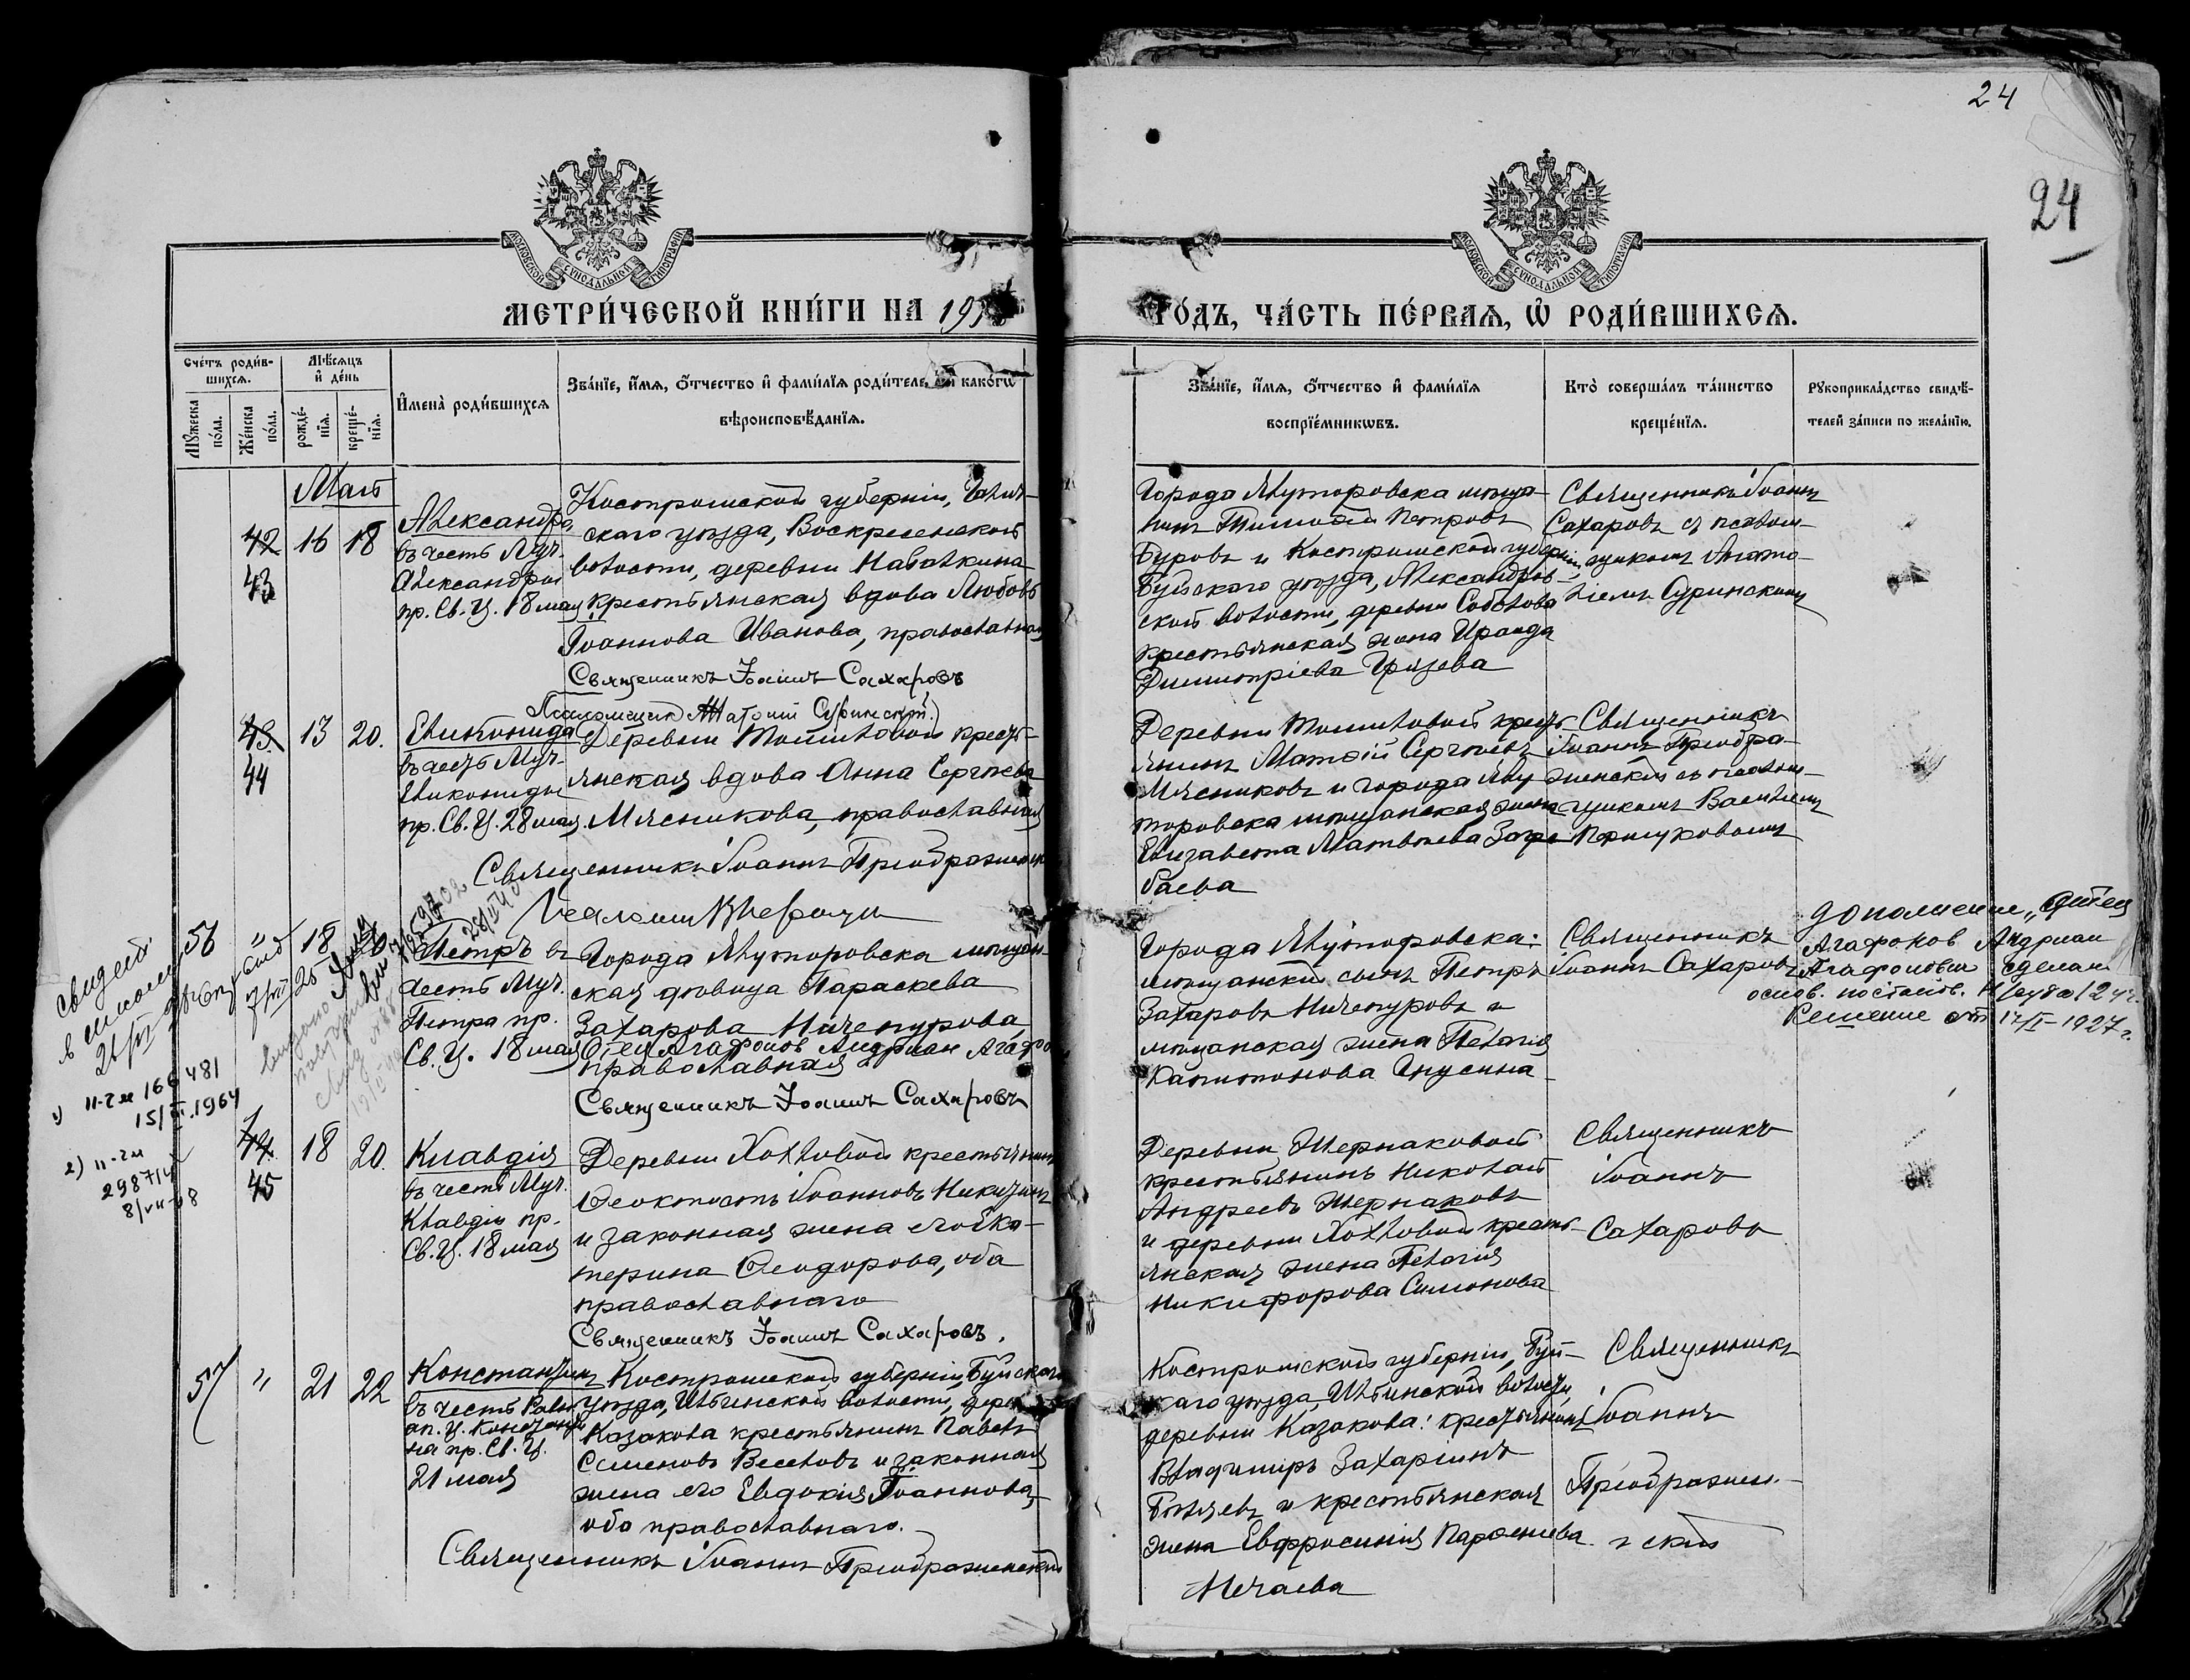 24
24
МОСКОВСКОЙ СѴНОДАЛЬНОЙ ТИПОГРАФІИ
МОСКОВСКОЙ СѴНОДАЛЬНОЙ ТИПОГРАФІИ
МЕТРИ́ЧЕСКОЙ КНИ́ГИ НА 19
ГО́ДЪ, ЧА́СТЬ ПЕ́РВАЯ, Ѡ РОДИ́ВШИХСЯ.
Сче́тъ роди́в-
шихся.
Мѣ́сяцъ
и де́нь
Му́жеска
по́ла.
Же́нска
по́ла.
рожде́-
нїя.
креще́-
нїя.
Имена̀ роди́вшихся
Зва́нїе, и́мя, о́тчество и фами́лїя роди́теле, и како́гѡ
вѣроисповѣ́данїя.
Зва́нїе, и́мя, о́тчество и фами́лїя
воспрїе́мникѡвъ.
Кто̀ соверша́лъ та́инство
креще́нїя.
Рукоприкла́дство свидѣ́-
телей за́писи по жела́нїю.
Май
42
43
16 18
Александра,
въ честь Муч.
Александры
пр. Св. Ц. 18 мая
Костромской губерніи, Галич-
скаго уѣзда, Воскресенской
волости, деревни
крестьянская вдова Любовь
Іоаннова Иванова, православная
Священникъ Іоаннъ Сахаровъ
Псаломщик Суринский
Города Ялуторовска мѣща-
нинъ Тимофей Петровъ
Буровъ и Костромской губерніи,
Буйскаго уѣзда, Александров-
ской волости, деревни Соболева
крестьянская жена Ираида
Димитріева Грязева
Священникъ Іоаннъ
Сахаровъ съ псалом-
щикомъ Анато-
ліемъ Суринскимъ
43
44
13 20.
Евлконида
въ честь Муч.
пр. Св. Ц. 28 мая.
Деревни Томиловой кресть-
янская вдова Анна Сергѣева
Мясникова, православная
Священникъ Іоаннъ Преображенск
Деревни Томиловой кресть-
янинъ Матѳій Сергѣевъ
Мясниковъ и города Ялу-
торовска мѣщанская жена
Елизавета Матвѣева Загре-
баева
Священникъ
Іоаннъ Преобра-
женскій съ псалом-
щикомъ Василіемъ
56 " 18
Петръ въ
честь Муч.
Петра пр.
Св. Ц. 18 мая
Города Ялуторовска мѣщан-
ская дѣвица Параскева
Захарова Ничепурова
Отец Агафонов Андриан Агафо
православная
Священникъ Іоаннъ Сахаровъ
Города Ялуторовска:
мѣщанскій сынъ Петръ
Захаровъ Ничепуровъ и
мѣщанская жена Пелагія
Капитонова Гнусина
Священникъ
Іоаннъ Сахаровъ
дополнение „Отец
Агафонов Андриан
Агафонович сделан
основ. постанов. Нарсуда 12 уч.
Решение от 17/I-1927 г.
1) II-ТМ 166481
15/III.1964
2) II-ТМ
298714
44.
45
18 20.
Клавдія
въ честь Муч.
Клавдіи пр.
Св. Ц. 18 мая
Деревни Хохловой крестьянинъ
Ѳеоктистъ Іоанновъ Никитинъ
и законная жена его Ека-
терина Ѳеодорова, оба
православнаго
Священникъ Іоаннъ Сахаровъ.
Деревни Жернаковой
крестьянинъ Николай
Андреевъ Жернаковъ
и деревни Хохловой кресть-
янская жена Пелагія
Никифорова Симонова
Священникъ
Іоаннъ
Сахаровъ
57 " 21 22
Константинъ
въ честь Равно-
ап. Ц. Константи-
на пр. Св. Ц.
21 мая
Костромской губерніи, Буйскаго
уѣзда, Ильинской волости, дерев
Казакова крестьянинъ Павелъ
Семеновъ Веселовъ и законная
жена его Евдокія Іоаннова,
оба православнаго.
Священникъ Іоаннъ Преображенскій
Костромской губерніи, Буй-
скаго уѣзда, Ильинской волости,
деревни Казакова: крестьянинъ
Владимиръ Захаріинъ
Бѣляевъ и крестьянская
жена Евфросинія Парѳеніева
Нечаева
Священникъ
Іоаннъ
Преображен-
скій